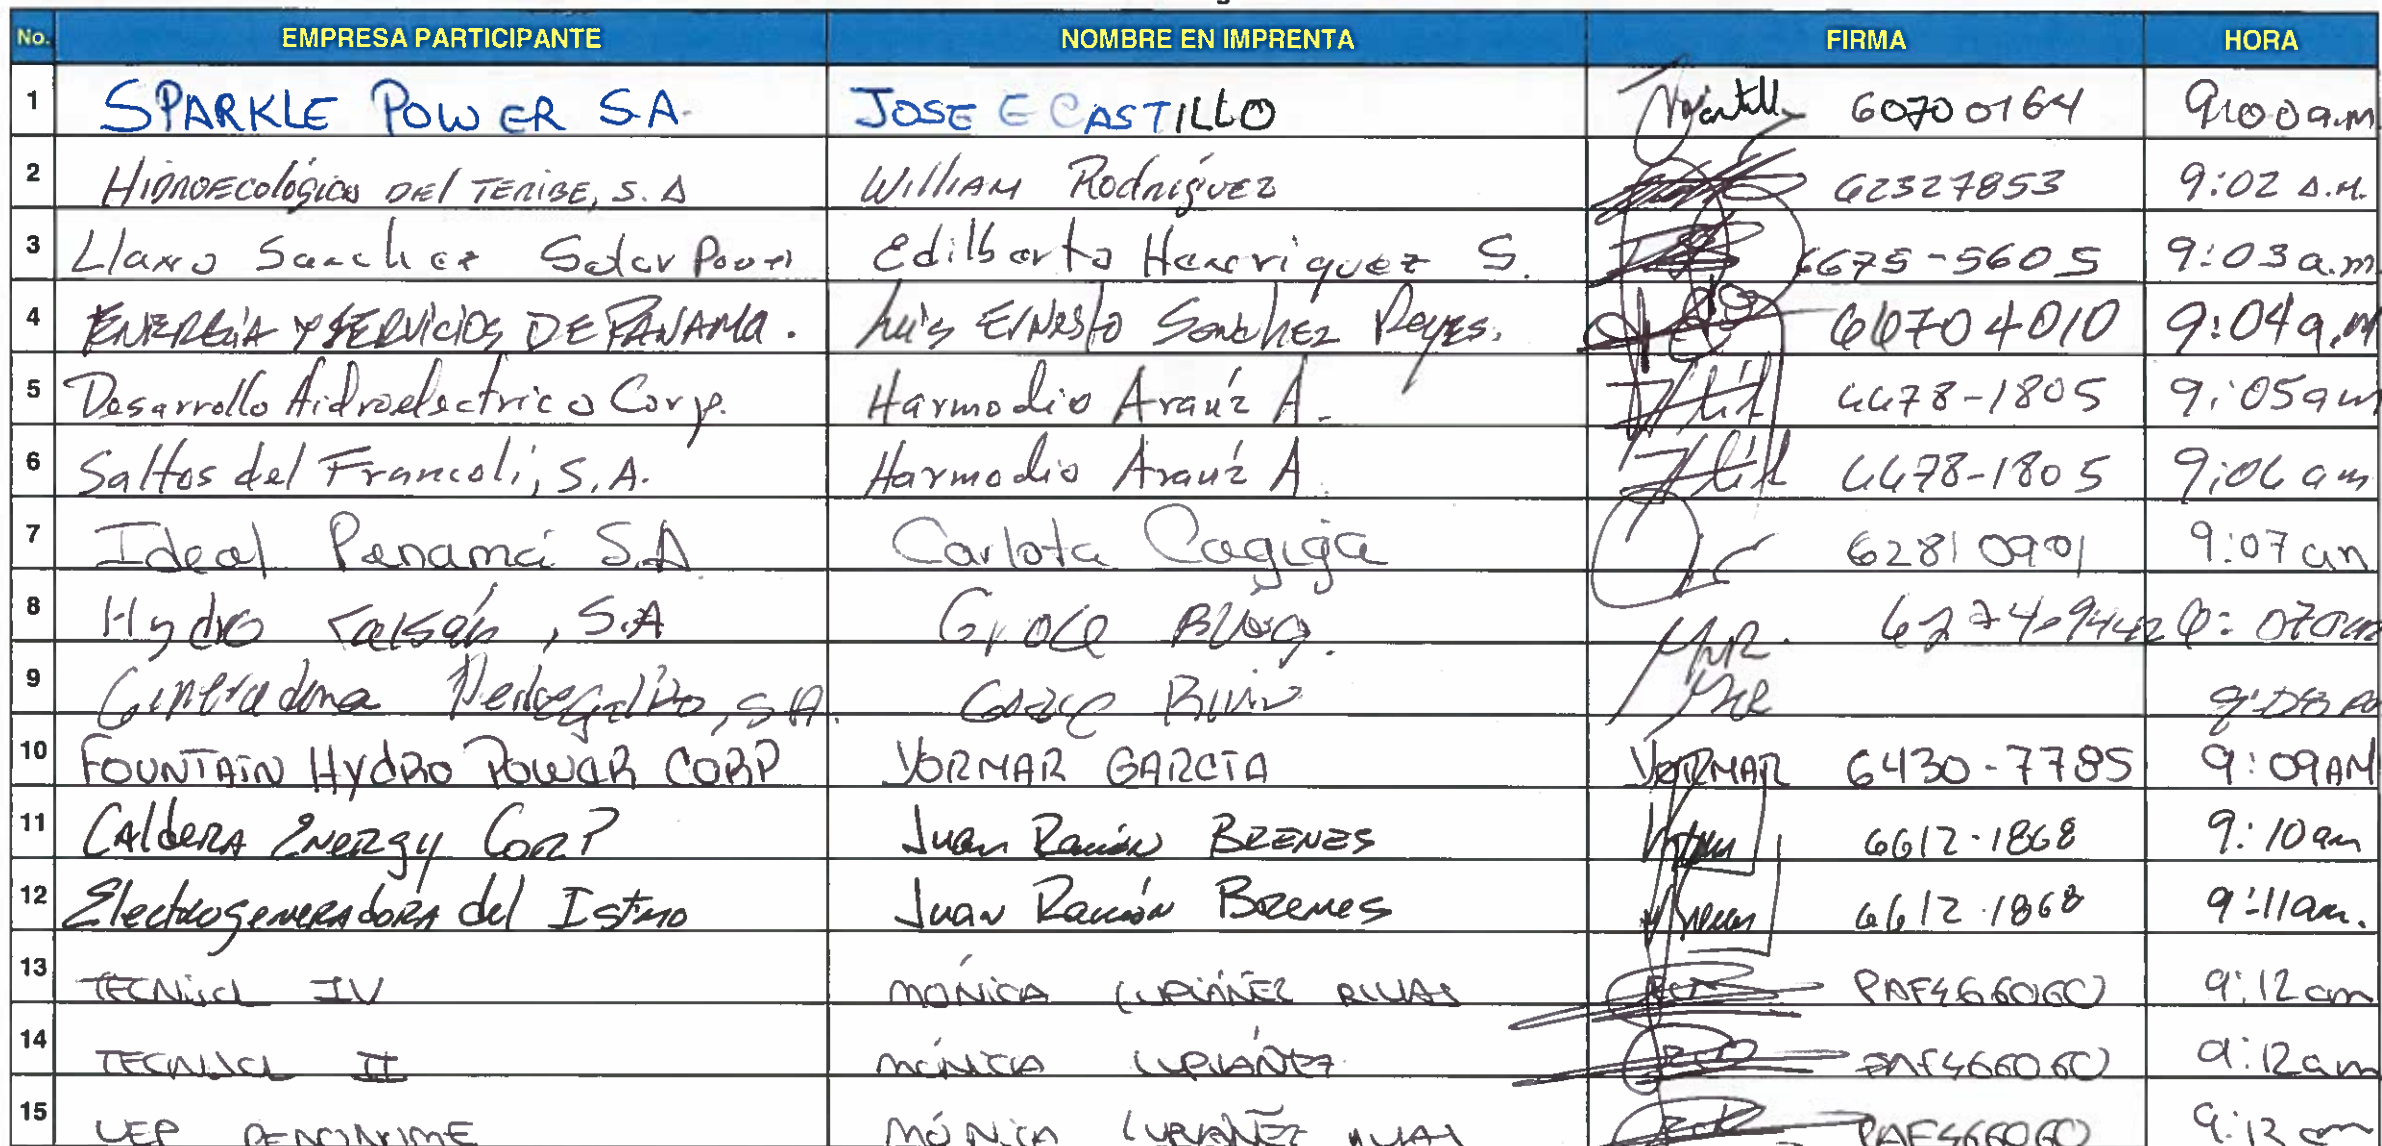 No. EMPRESA PARTICIPANTE NOMBRE EN IMPRENTA FIRMA HORA
1 SPARKLE POWER S.A. JOSE E CASTILLO 60700164 9:00 a.m
2 HIDROECOlógica DEl TERIBE, S.A WilliAM Rodríguez 62327853 9:02 A.M.
3 Llano Sanchez Solar Power Edilberto Henriquez S. 6675-5605 9:03 a.m
4 ENERGÍA Y SERVICIOS DE PANAMA. Luis Ernesto Sanchez Reyes. 66704010 9:04 a.m
5 Desarrollo Hidroelectrico Corp. Harmodio Araúz A. 6678-1805 9:05 am
6 Saltos del Francoli, S.A. Harmodio Araúz A. 6678-1805 9:06 am
7 Ideal Panamá S.A Carlota Cagiga 62810901 9:07 am
8 Hydro Caisán, S.A Grace 9:07am
9 Generadora Pedregalito, S.A. Grace 9:08
10 FOUNTAIN HYDRO POWER CORP YORMAR GARCIA YORMAR 6430-7785 9:09AM
11 CAldERA ENERgy CORP Juan Ramón BRENES 6612-1868 9:10 am
12 ElectrogeneRAdoRA del Istmo Juan Ramón BRENES 6612-1868 9:11am.
13 TECNISOL IV MÓNICA LUPIÁÑEZ RIVAS PAF466060 9:12 am
14 TECNISOL II MÓNICA LUPIÁÑEZ PAF466060 9:12am
15 UEP PENONOME MÓNICA LUPIÁÑEZ RIVAS PAF466060 9:12 am